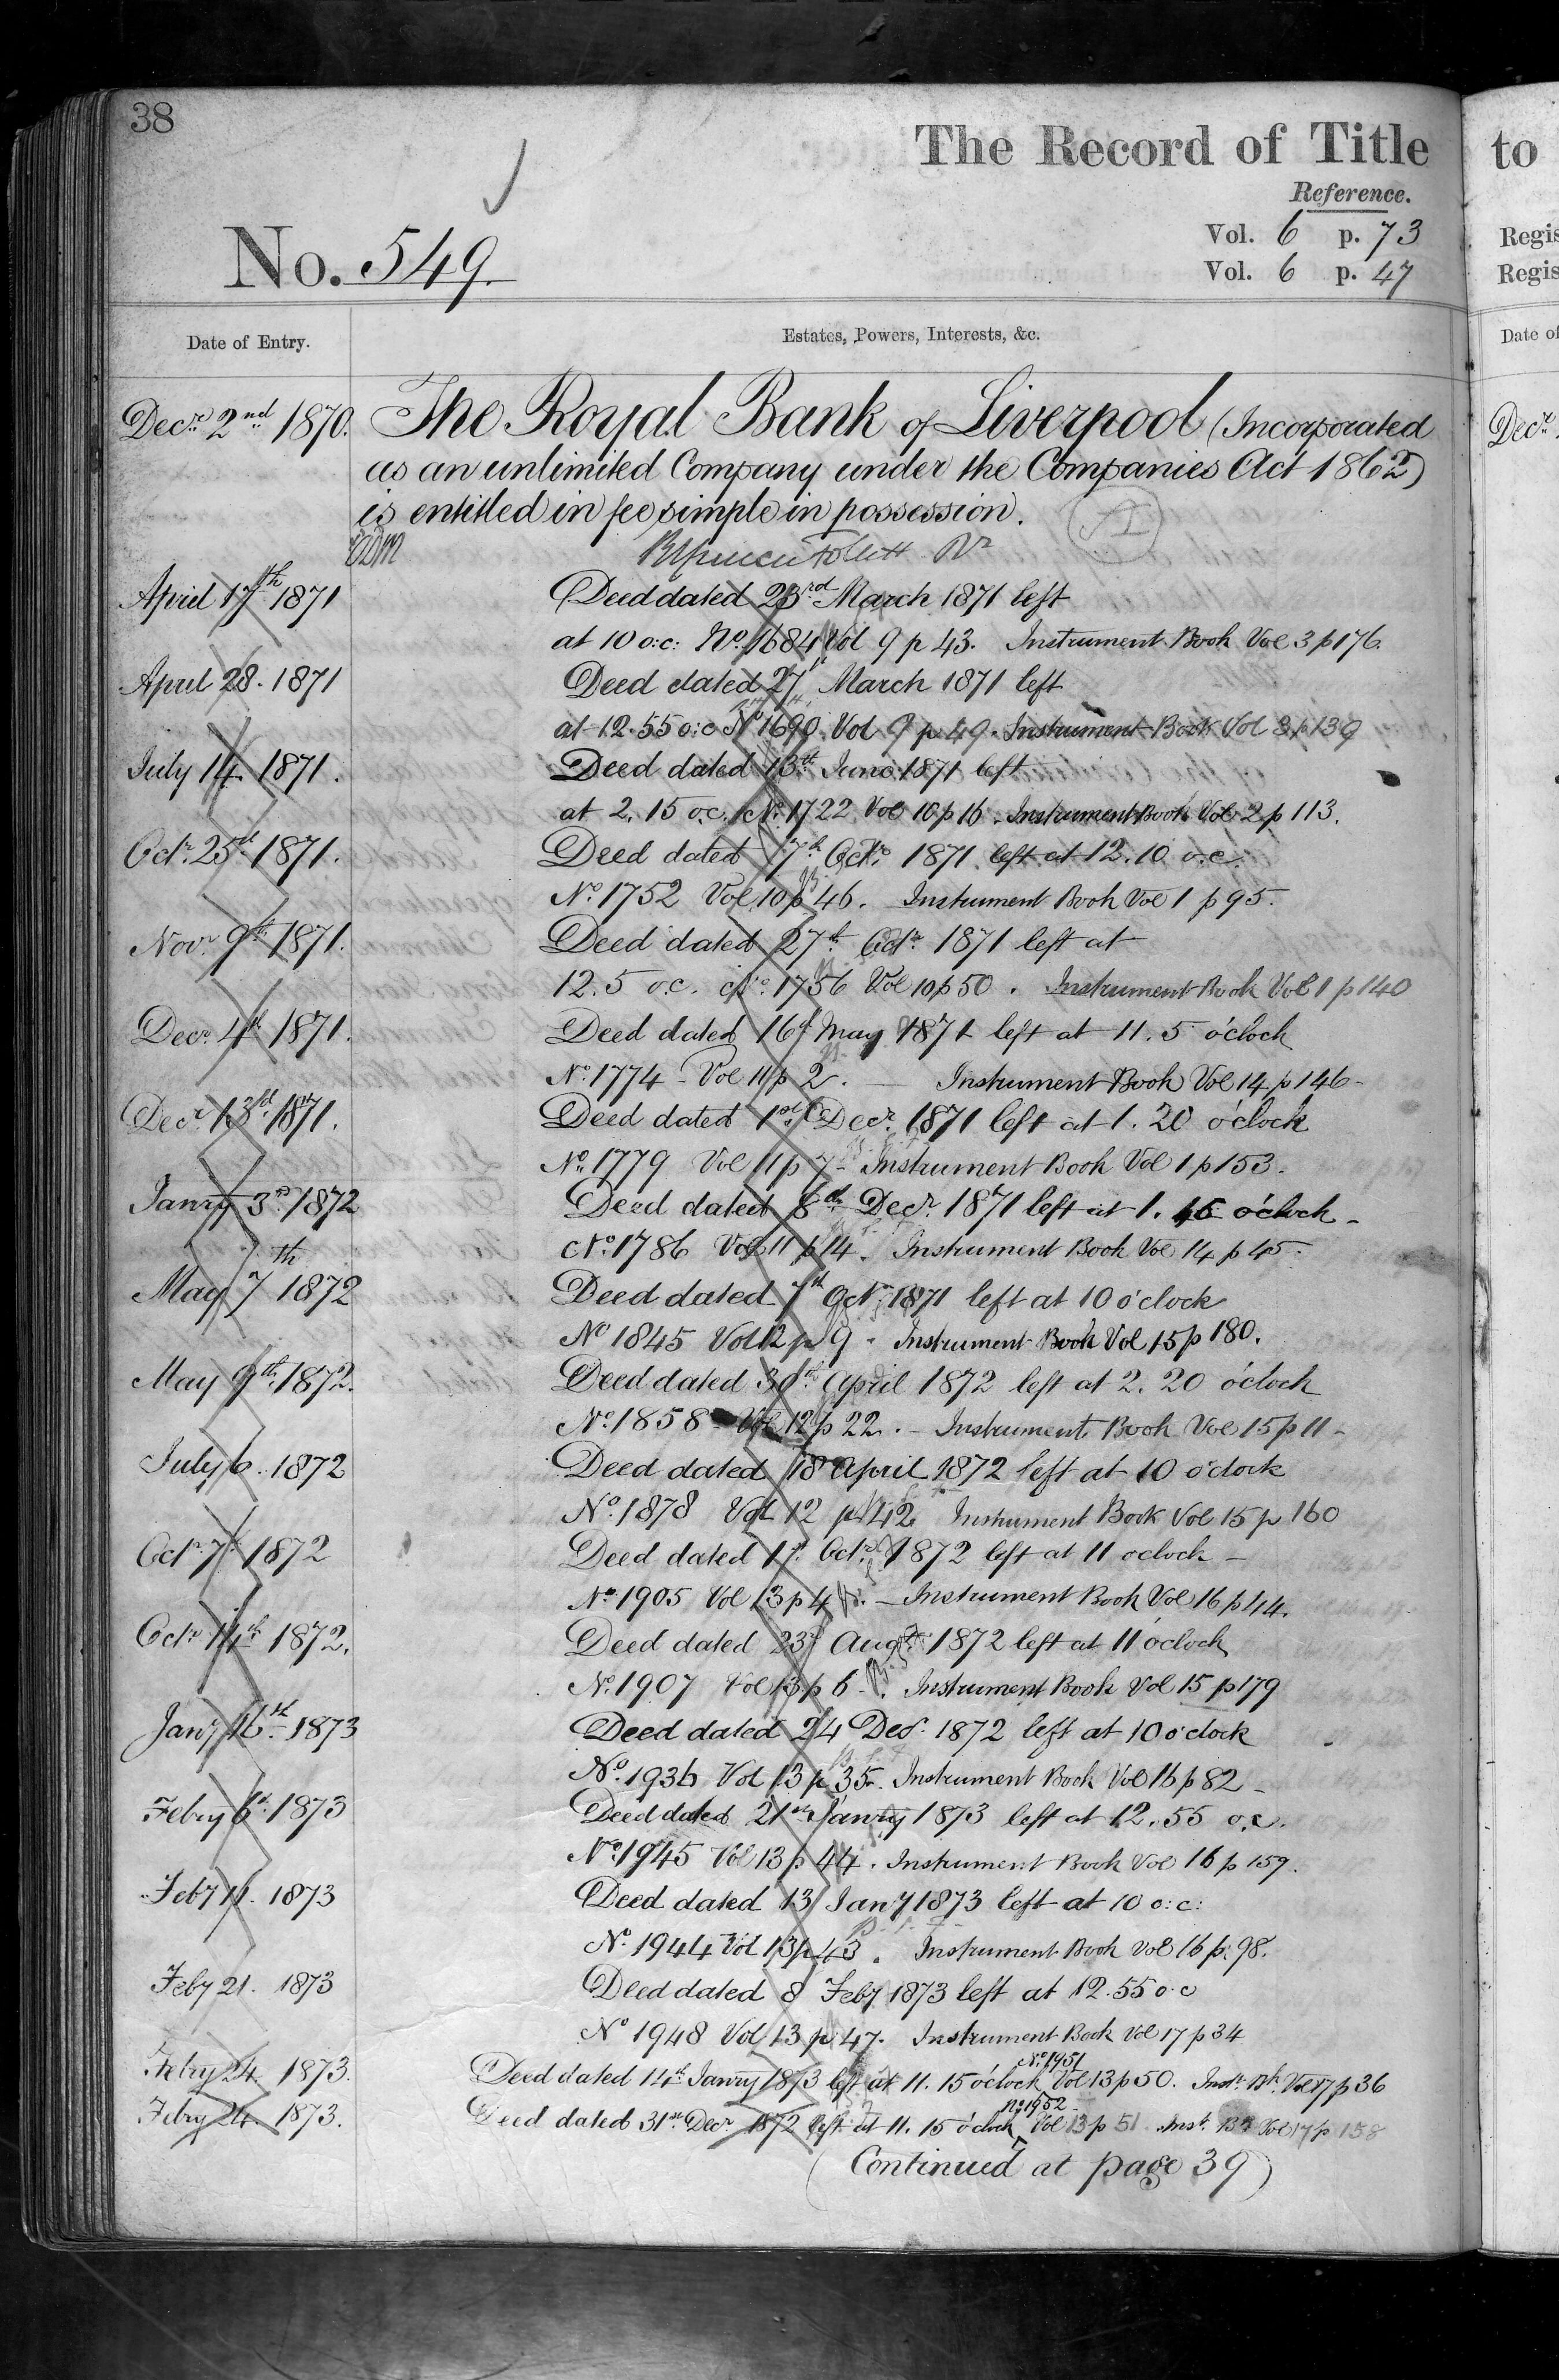 38
The Record of Title
to
Reference.
Vol. 6 p. 73
Regis
No. 549.
Vol. 6 p. 47
Regis
Date of Entry.
Estates, Powers, Interests, &c.
Date of
Decr. 2nd 1870. The Royal Bank of Liverpool (Incorporated
Decr.
as an unlimited Company under the Companies Act 1862)
is entitled in fee simple in possession.
April 17th 1871 Deed dated 23rd March 1871 left
at 10 o:c: No. 1684 Vol 9 p 43. Instrument Book Vol 3 p 176.
April 28. 1871 Deed dated 27th March 1871 left
at 12.55 o:c No 1690. Vol 9 p 49. Instrument Book Vol 3 p 139
July 14. 1871. Deed dated 13th June 1871 left
at 2.15 o.c. No. 1722 Vol 10 p 16. Instrument Book Vol 2 p 113.
Octr. 25th 1871. Deed dated 17th Octr. 1871 left at 12.10 o.c.
No. 1752 Vol 10 p 46. Instrument Book Vol 1 p 95.
Novr. 9th 1871. Deed dated 27th Octr. 1871 left at
12.5 o.c. No. 1756 Vol 10 p 50. Instrument Book Vol 1 p 140
Decr. 4th 1871. Deed dated 16th May 1871 left at 11.5 o'clock
No. 1774 - Vol 11 p 2. — Instrument Book Vol 14 p 146 -
Decr. 13th 1871. Deed dated 1st Decr. 1871 left at 1.20 o'clock
No. 1779 Vol 11 p 7 - Instrument Book Vol 1 p 153.
Janry 3rd 1872 Deed dated 8th Decr. 1871 left at 1. 45 o'clock -
No. 1786 Vol 11 p 14. Instrument Book Vol 14 p 45.
May 7th 1872 Deed dated 7th Octr. 1871 left at 10 o'clock
No 1845 Vol 12 p 9 - Instrument Book Vol 15 p 180.
May 9th 1872. Deed dated 30th April 1872 left at 2.20 o'clock
No. 1858 - Vol 12 p 22. - Instrument Book Vol 15 p 11 -
July 6. 1872 Deed dated 18 April 1872 left at 10 o'clock
No. 1878 Vol 12 p 42 Instrument Book Vol 15 p 160
Octr. 7th 1872 Deed dated 1st. Octr. 1872 left at 11 oclock -
No. 1905 Vol 13 p 4. - Instrument Book Vol 16 p 44.
Octr. 14th 1872. Deed dated 23rd Augt. 1872 left at 11 o'clock
No. 1907 Vol 13 p 6 -. Instrument Book Vol 15 p 179
Jany 16th 1873 Deed dated 24 Decr. 1872 left at 10 o'clock
No. 1936 Vol 13 p 35. Instrument Book Vol 16 p 82 -
Febry 6th 1873 Deed dated 21st Janry 1873 left at 12.55 o.c.
No. 1945 Vol 13 p 44. Instrument Book Vol 16 p 159.
Feby 11. 1873 Deed dated 13 Jany 1873 left at 10 o:c:
No. 1944 Vol 13 p 43. Instrument Book Vol 16 p. 98.
Feby 21. 1873 Deed dated 8 Feby 1873 left at 12.55 o.c
No 1948 Vol 13 p 47. Instrument Book Vol 17 p 34
No. 1951
Febry 24. 1873. Deed dated 14th Janry 1873 left at 11.15 o'clock Vol 13 p 50. Instr. Bk. Vol 17 p 36
No. 1952
Febry 24. 1873. Deed dated 31st Decr. 1872 left at 11.15 o'clock Vol 13 p 51. Inst. Bk Vol 17 p 158
(Continued at page 39)